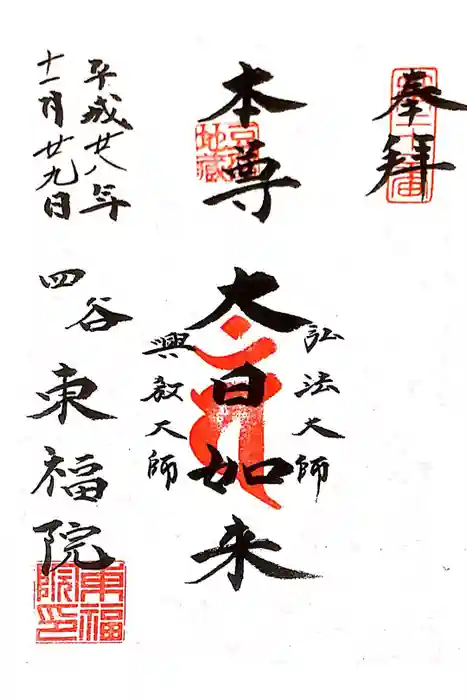 奉拝
弘法大師
本尊 大日如来
興教大師
平成廿八年
十一月廿九日
四谷 東福院
東福院印